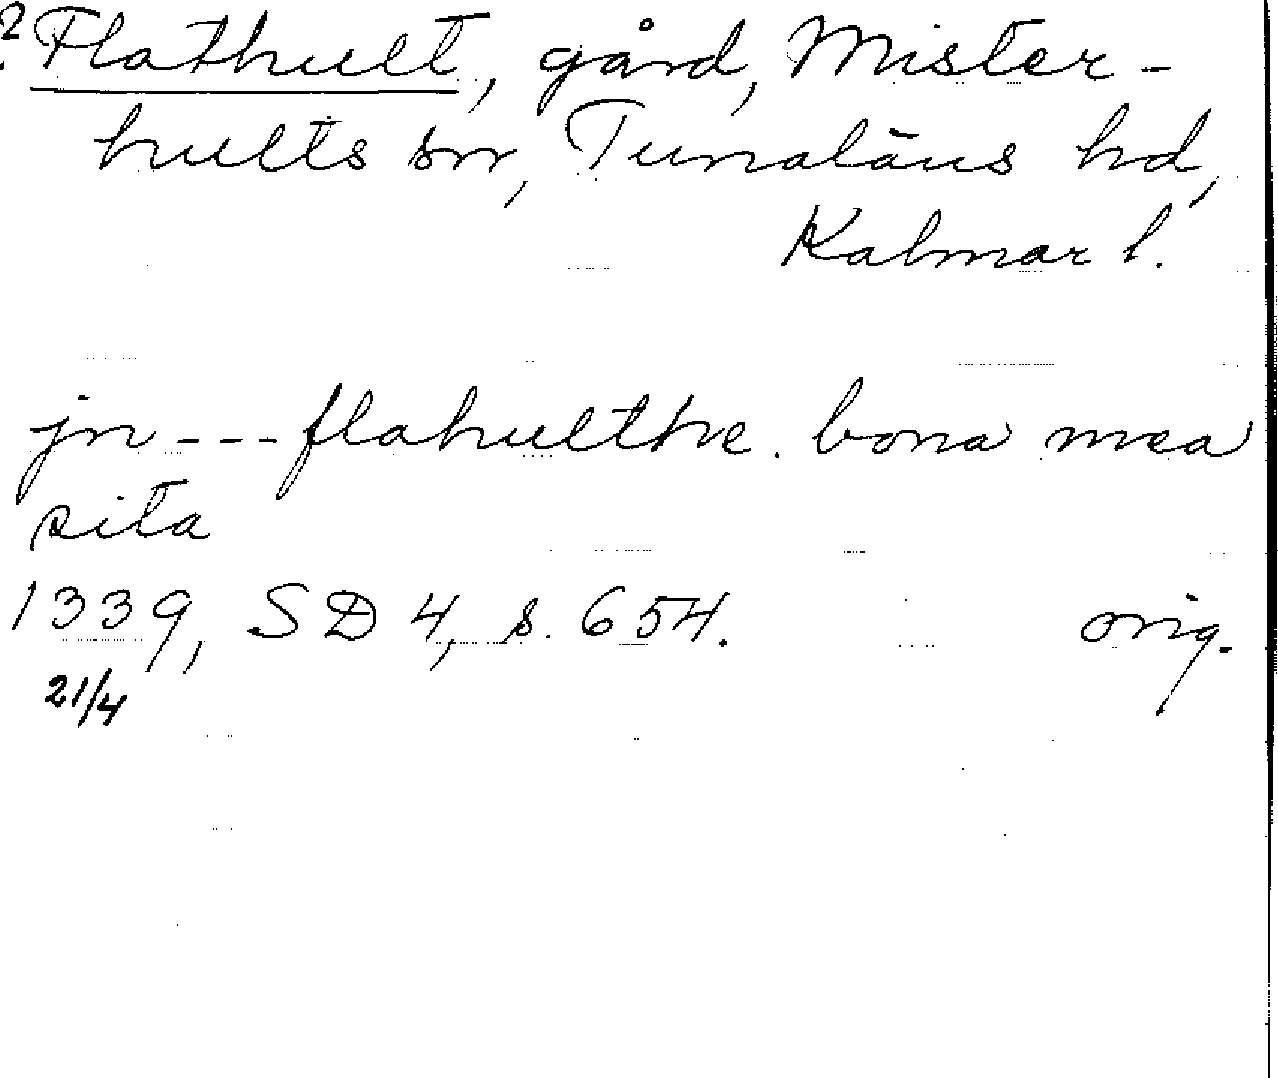 ? Flathult, gård, Mister-
hults sn, Tunaläns hd,
Kalmar l.
jn --- flahulthe. bona mea
sita
1339, SD 4, s. 654. orig.
21/4